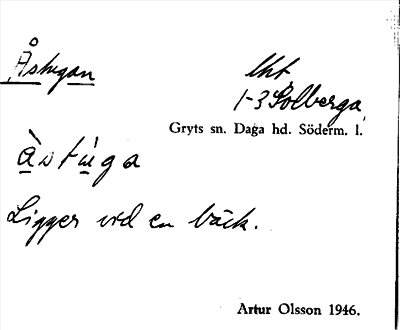 Åstugan
Uht
1-3 Solberga,
Gryts sn. Daga hd. Söderm. l.
àstùga
Ligger vid en bäck.
Artur Olsson 1946.